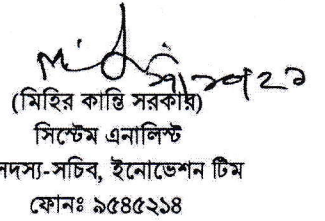 (মিহির কান্তি সরকার)
সিস্টেম এনালিস্ট
সদস্য-সচিব, ইনোভেশন টিম
ফোনঃ ৯৫৪৫২১৪